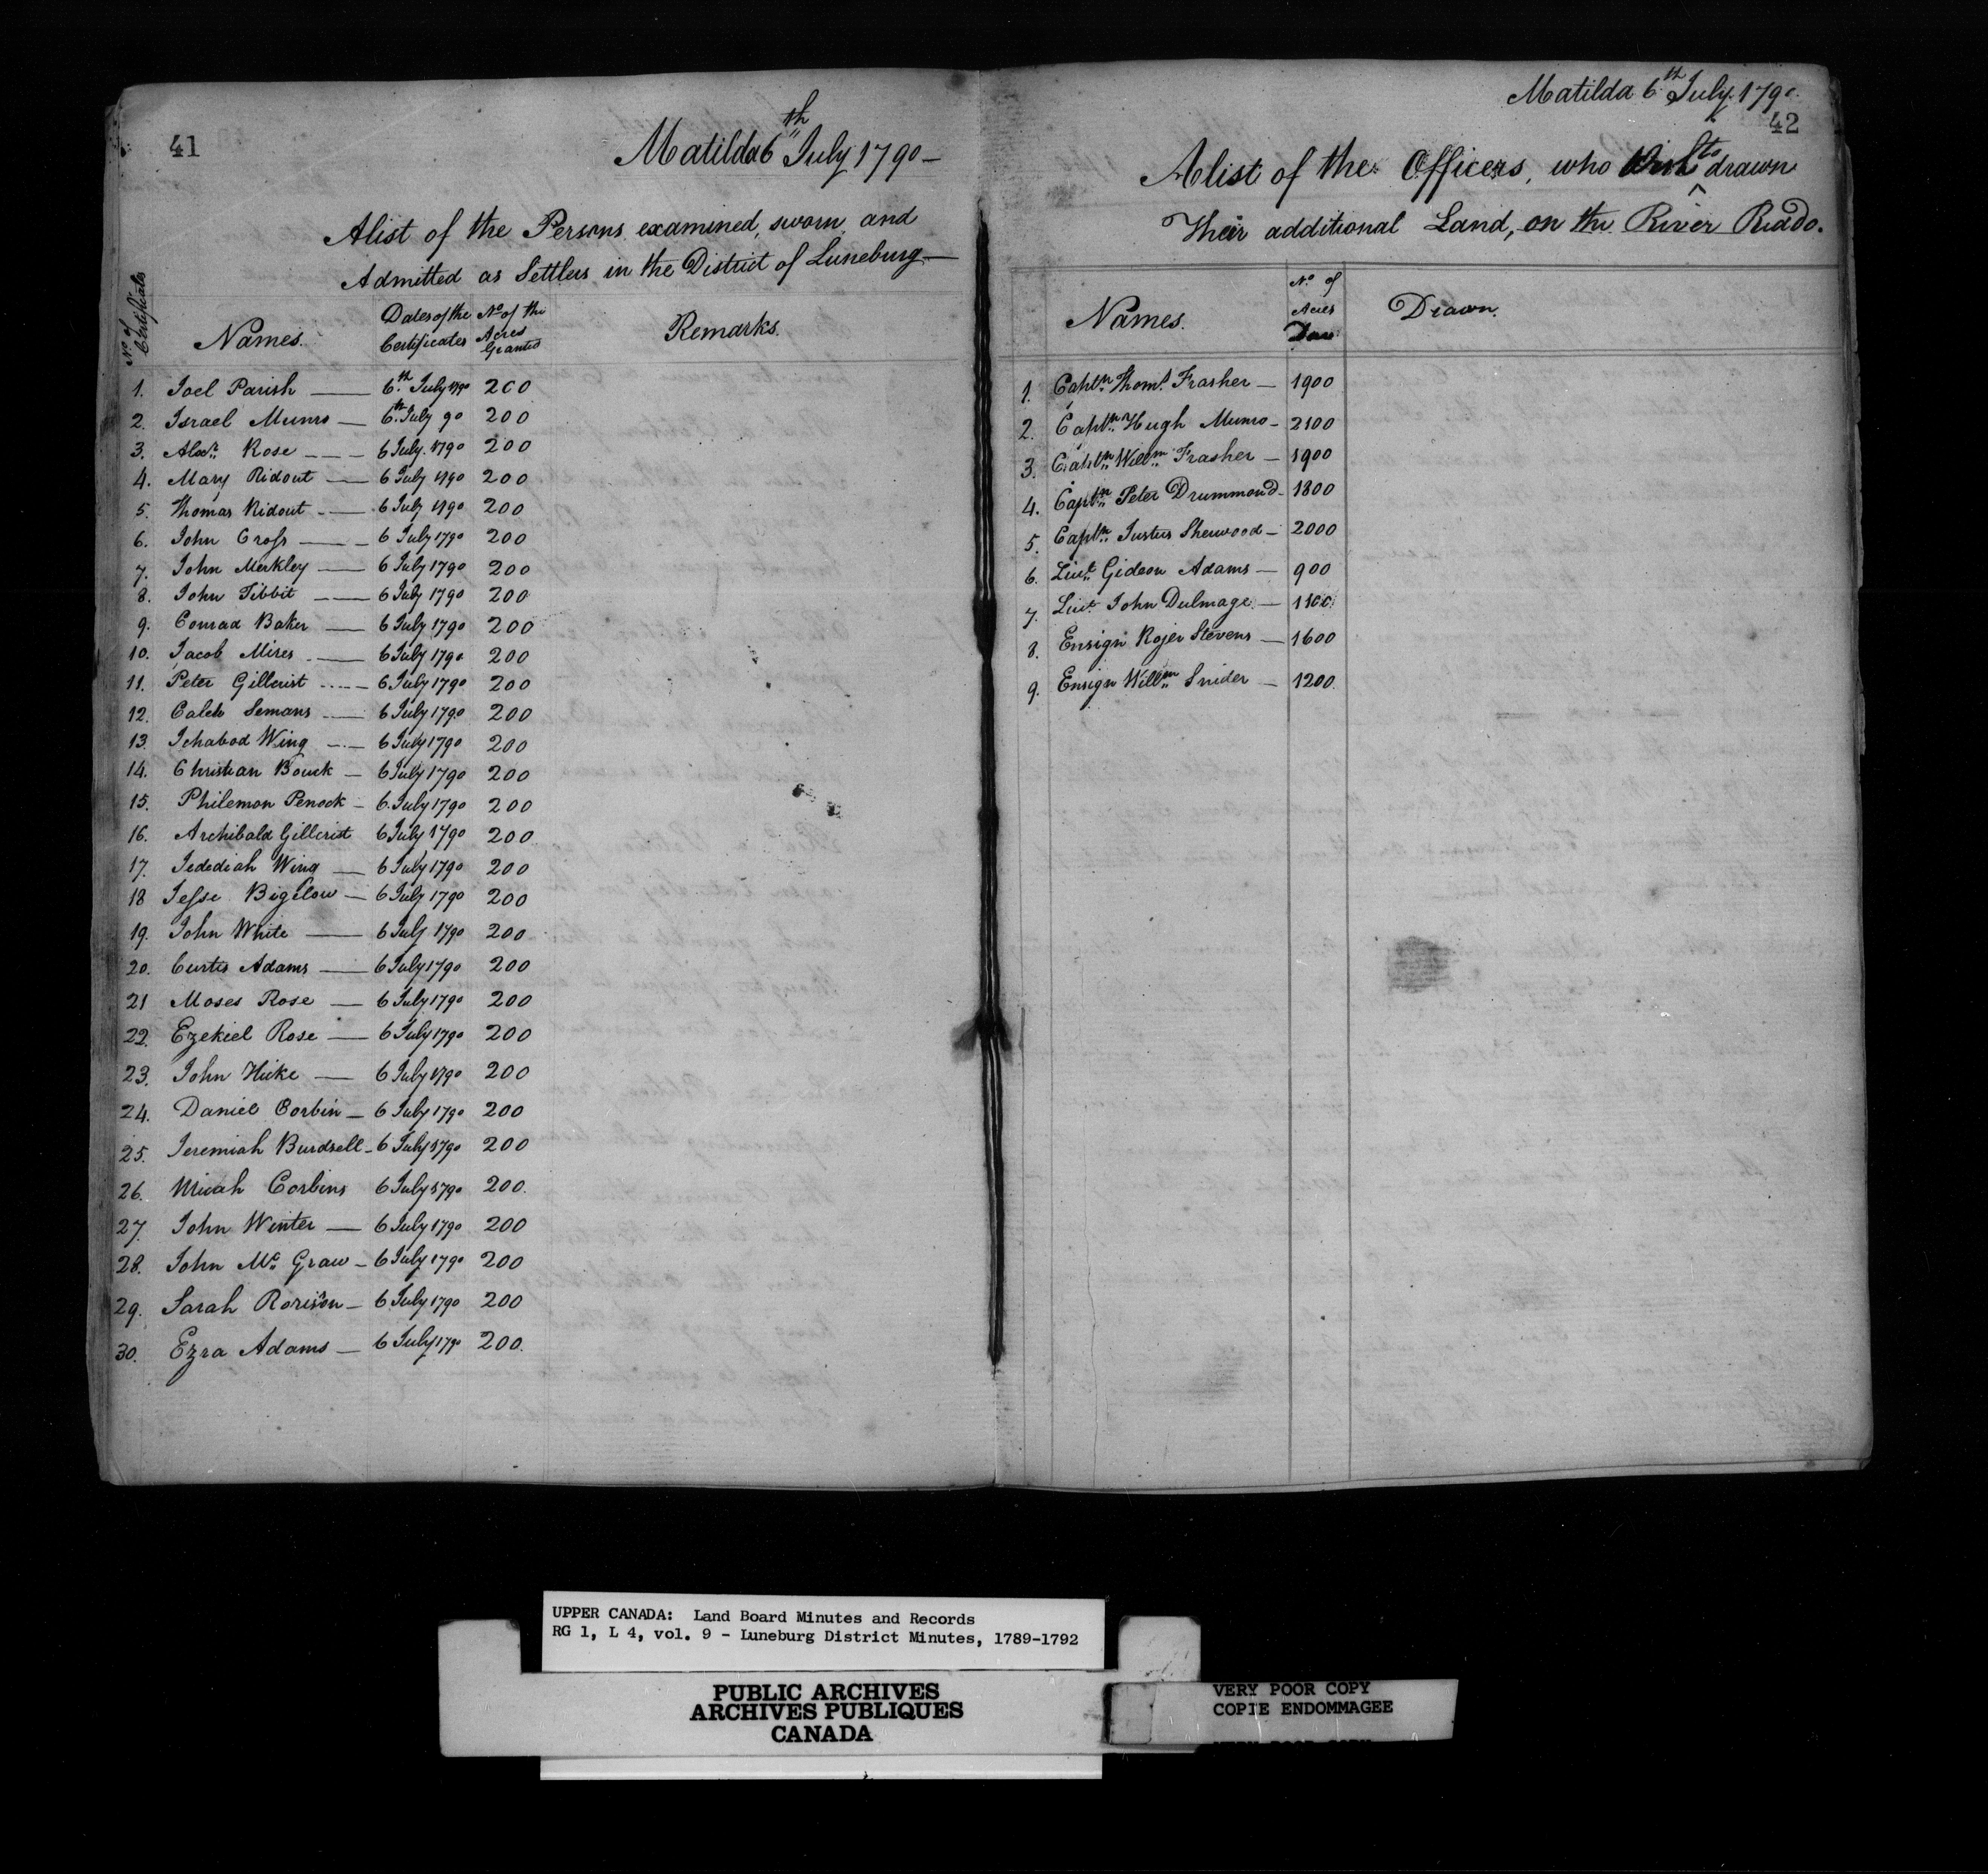 41
Matilda 6th July 1790 —
A list of the Persons examined, sworn and
Admitted as Settlers in the District of Luneburg —
No. of Certificate | Names. | Dates of the Certificates | No. of the Acres Granted | Remarks.
1. Joel Parish — 6th July 1790 200
2. Israel Munro — 6th July 90 200
3. Alexr. Rose — 6 July. 1790 200
4. Mary Ridout — 6 July 1790 200
5. Thomas Ridout — 6 July 1790 200
6. John Cross — 6 July 1790 200
7. John Merkley — 6 July 1790 200
8. John Tibbit — 6 July 1790 200
9. Conrad Baker — 6 July 1790 200
10. Jacob Mires — 6 July 1790 200
11. Peter Gillcrist — 6 July 1790 200
12. Caleb Semans — 6 July 1790 200
13. Ichabod Wing — 6 July 1790 200
14. Christian Bouck — 6 July 1790 200
15. Philemon Penock — 6 July 1790 200
16. Archibald Gillcrist 6 July 1790 200
17. Jedediah Wing — 6 July 1790 200
18 Jesse Bigelow — 6 July 1790 200
19. John White — 6 July 1790 200
20. Curtis Adams — 6 July 1790 200
21 Moses Rose — 6 July 1790 200
22. Ezekiel Rose — 6 July 1790 200
23. John Hicke — 6 July 1790 200
24. Daniel Corbin — 6 July 1790 200
25. Jeremiah Burdsell - 6 July 1790 200
26. Micah Corbins 6 July 1790 200.
27. John Winter — 6 July 1790 200
28. John Mc. Graw - 6 July 1790 200
29. Sarah Rorison — 6 July 1790 200
30. Ezra Adams — 6 July 1790 200.
Matilda 6th July. 1790.
42
A list of the Officers, who to drawn
Their additional Land, on the River Riado.
Names. | No. of Acres | Drawn.
1. Captn. Thoms. Frasher — 1900
2. Captn. Hugh Munro - 2100
3. Captn. Willm. Frasher — 1900
4. Captn. Peter Drummond - 1800
5. Captn. Justus Sherwood - 2000
6. Lieut. Gideon Adams — 900
7. Lieut. John Dulmage. —
8. Ensign Rojer Stevens — 1600
9. Ensign Willm. Snider — 1200.
UPPER CANADA: Land Board Minutes and Records
RG 1, L 4, vol. 9 - Luneburg District Minutes, 1789-1792
PUBLIC ARCHIVES
ARCHIVES PUBLIQUES
CANADA
VERY POOR COPY
COPIE ENDOMMAGEE
VERY POOR COPY